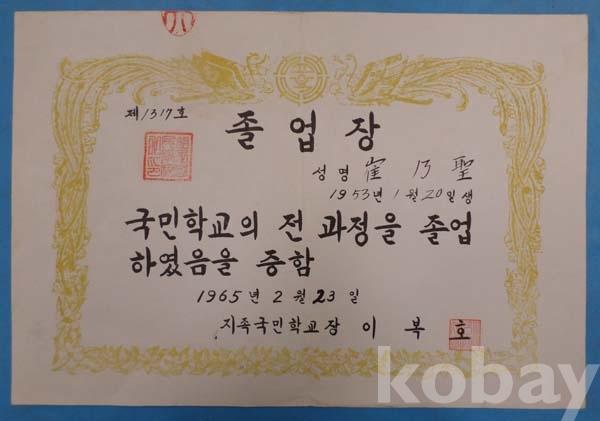 제1317호
졸업장
성명 崔乃聖
1953년 1월 20일생
국민학교의 전 과정을 졸업
하였음을 증함
1965년 2월 23일
지족국민학교장 이복호
kobay